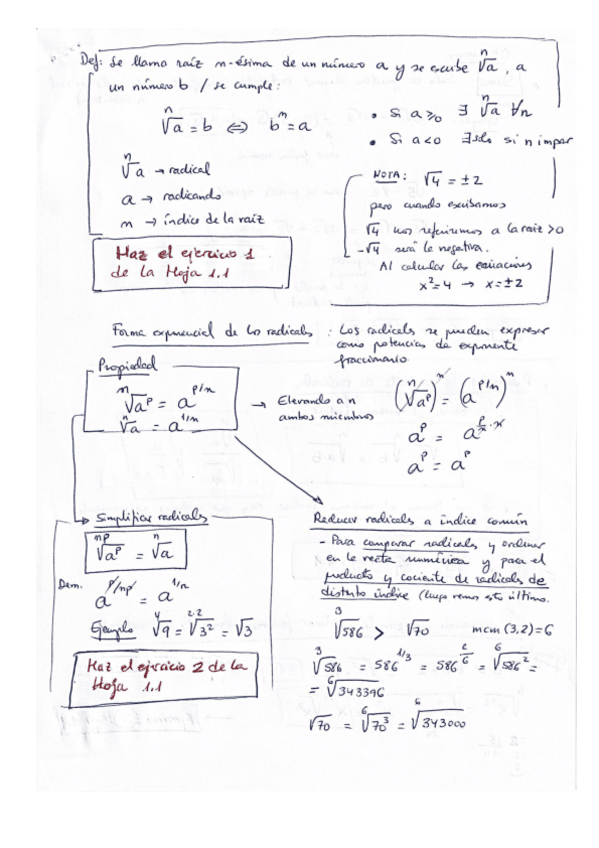 Def: Se llama raíz n-ésima de un número a y se escribe ⁿ√a, a
un número b / se cumple:
ⁿ√a = b ⇔ bⁿ = a
• Si a ≥ 0 ∃ ⁿ√a ∀n
• Si a < 0 ∃ sólo si n impar
ⁿ√a → radical
a → radicando
n → índice de la raíz
NOTA: √4 = ±2
pero cuando escribamos
√4 nos referiremos a la raíz >0
-√4 será la negativa.
Al calcular las ecuaciones
x² = 4 → x = ±2
Haz el ejercicio 1
de la Hoja 1.1
Forma exponencial de los radicales : Los radicales se pueden expresar
como potencias de exponente
fraccionario.
Propiedad
ⁿ√aᵖ = a^(p/n)
ⁿ√a = a^(1/n)
→ Elevando a n
ambos miembros
(ⁿ√aᵖ)ⁿ = (a^(p/n))ⁿ
aᵖ = a^(p/n · n)
aᵖ = aᵖ
Simplificar radicales
ⁿᵖ√aᵖ = ⁿ√a
Dem. a^(p/np) = a^(1/n)
Ejemplo ⁴√9 = ²·²√3² = √3
Haz el ejercicio 2 de la
Hoja 1.1
Reducir radicales a índice común
- Para comparar radicales y ordenar
en la recta numérica y para el
producto y cociente de radicales de
distinto índice (luego vemos esto último.
³√586 > √70 mcm (3,2) = 6
³√586 = 586^(1/3) = 586^(2/6) = ⁶√586² =
= ⁶√343396
√70 = ⁶√70³ = ⁶√343000